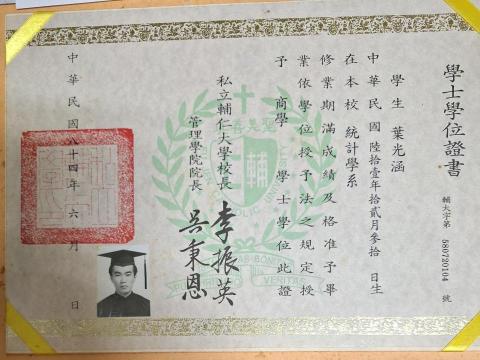 學士學位證書
輔大字第 580720104 號
學生 葉光涵
中華民國陸拾壹年拾貳月參拾 日生
在本校 統計學系
修業期滿成績及格准予畢
業依學位授予法之規定授
予 商學 學士學位此證
私立輔仁大學校長 李振英
管理學院院長 吳秉恩
中華民國八十四年六月 日
輔
VERITAS BONITAS